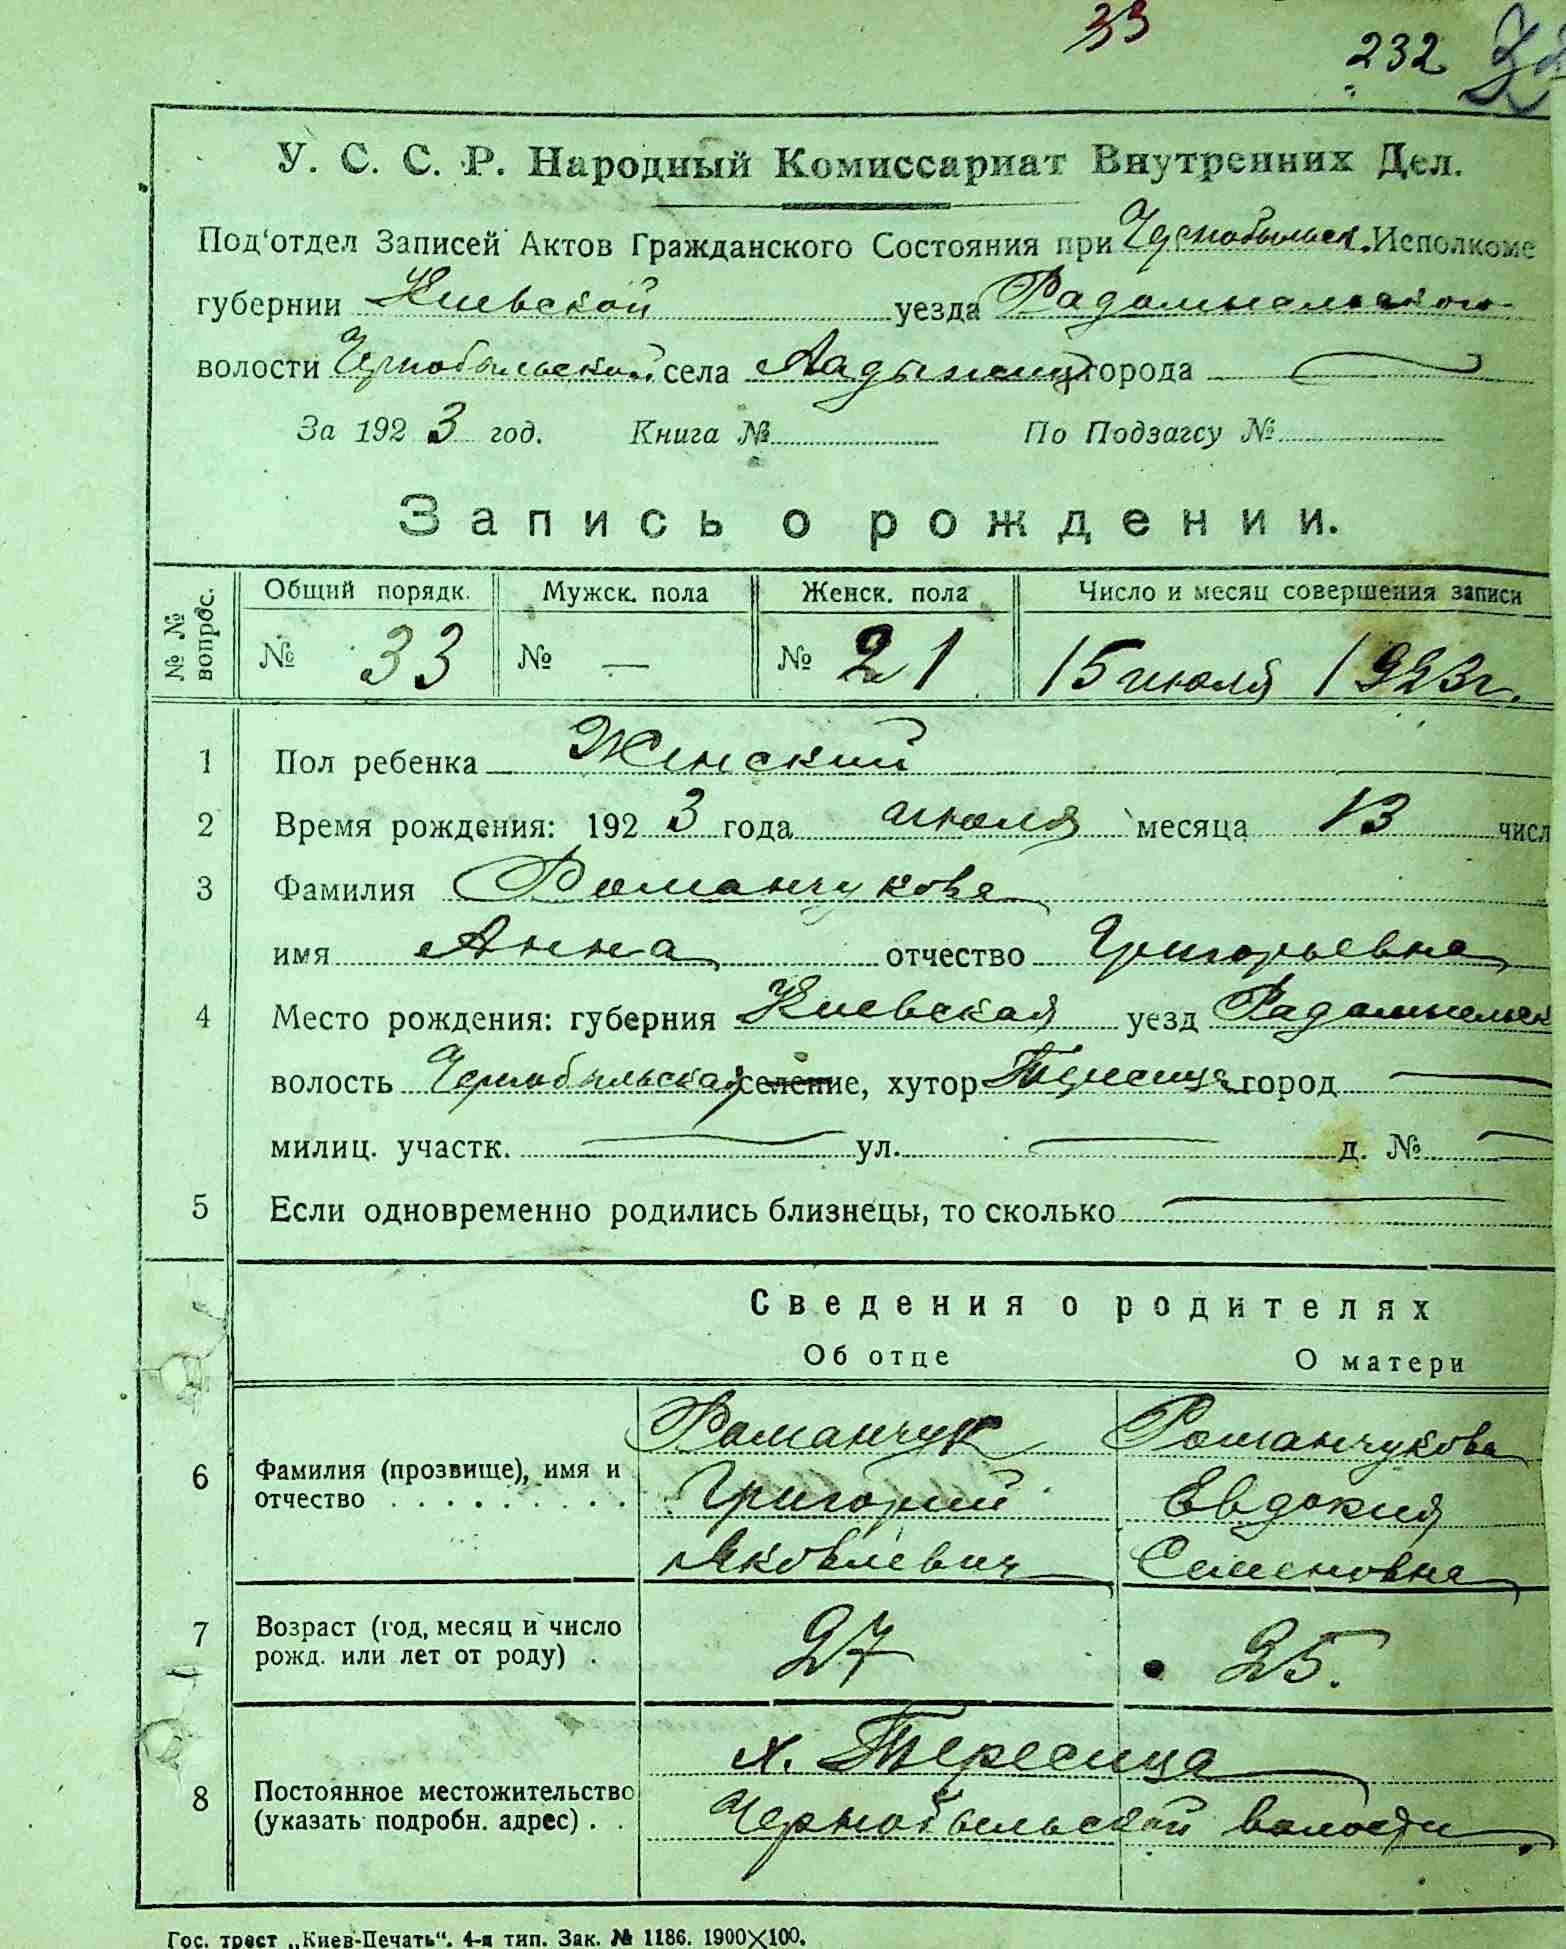 33
232
У. С. С. Р. Народный Комиссариат Внутренних Дел.
Под'отдел Записей Актов Гражданского Состояния при Чернобыльск. Исполкоме
губернии Киевской уезда Радомысльского
волости Чернобыльской села Ладыжичи города —
За 1923 год. Книга № По Подзагсу №
Запись о рождении.
№ № вопрос. Общий порядк. Мужск. пола Женск. пола Число и месяц совершения записи
№ 33 № — № 21 15 июля 1923 г.
1 Пол ребенка Женский
2 Время рождения: 1923 года июля месяца 13 числ
3 Фамилия Романчукова
имя Анна отчество Григорьевна
4 Место рождения: губерния Киевская уезд Радомысльск
волость Чернобыльская селение, хутор Тересица город —
милиц. участк. — ул. — д. № —
5 Если одновременно родились близнецы, то сколько —
Сведения о родителях
Об отце О матери
Романчук Романчукова
6 Фамилия (прозвище), имя и Григорий Евдокия
отчество . . . . . . . . . Яковлевич Семеновна
7 Возраст (год, месяц и число 27 25.
рожд. или лет от роду) .
х. Тересица
8 Постоянное местожительство Чернобыльской волости
(указать подробн. адрес) . .
Гос. трест „Киев-Печать“. 4-я тип. Зак. № 1186. 1900×100.